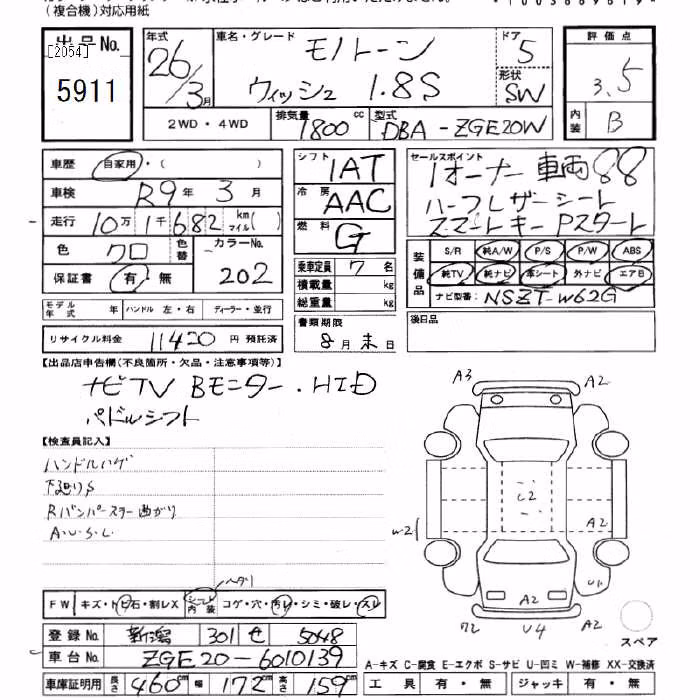 (複合機)対応用紙
出品No.
[2054]
5911
年式
26/3月
車名・グレード
モノトーン
ウィッシュ 1.8S
ドア
5
形状
SW
評価点
3.5
内装
B
2WD・4WD
排気量
1800cc
型式
DBA-ZGE20W
車歴 自家用・( )
車検 R9年 3月
走行 10万1千682 km マイル( )
色 クロ
色替
カラーNo.
202
保証書 有・無
モデル年式 年 ハンドル 左・右 ディーラー・並行
リサイクル料金 11420円預託済
シフト 1AT
冷房 AAC
燃料 G
乗車定員 7名
積載量 kg
総重量 kg
書類期限
8月末日
セールスポイント
1オーナー 車両88
ハーフレザーシート
スマートキー Pスタート
装備品
S/R 純A/W P/S P/W ABS
純TV 純ナビ 本シート 外ナビ エアB
ナビ型番: NSZT-W62G
後日品
【出品店申告欄(不良箇所・欠品・注意事項等)】
ナビTV Bモニター.HID
パドルシフト
【検査員記入】
ハンドルハゲ
下廻りS
Rバンパースラー曲がり
A.U.S.L.
ヘタリ
FW キズ・トビ石・割レX
シート内装 コゲ・穴・汚レ・シミ・破レ・スレ
登録No. 新潟 301 せ 5048
車台No. ZGE20-6010139
車庫証明用 長さ 460cm 幅 172cm 高さ 159cm
A3
A2
C2
A2
W2
A2
U4
A2
U1
スペア
A-キズ C-腐食 E-エクボ S-サビ U-凹ミ W-補修 XX-交換済
工具 有・無 ジャッキ 有・無